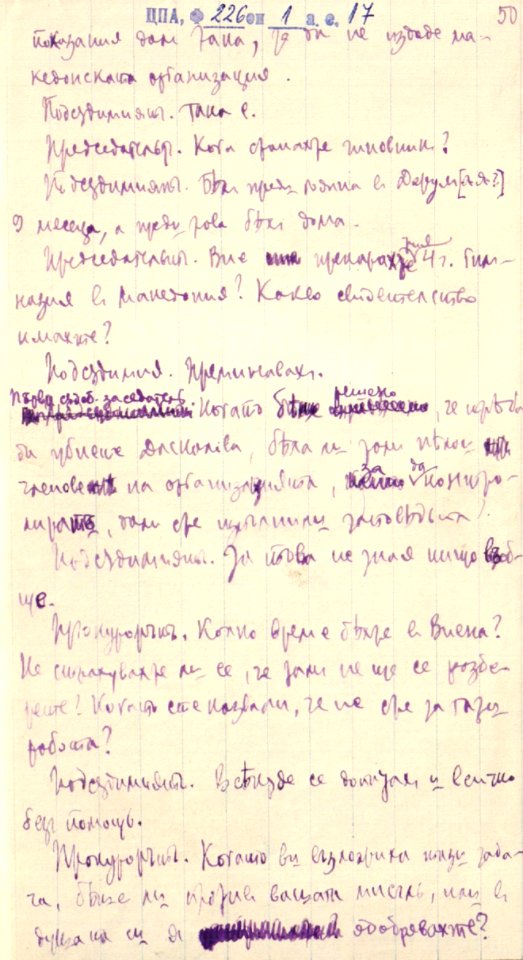 ЦПА, Ф 226 оп 1 а. е. 17 50
показания дали така, за да не издаде ма-
кедонската организация.
Подсѫдимиятъ. Така е.
Председательтъ. Кога станахте чиновникъ?
Подсѫдимиятъ. Бѣхъ въ
9 месеца, а преди това бѣхъ дома.
Председательтъ. Вие 4 г. гим-
назия въ Македония? Какво свидетелство
имахте?
Подсѫдимия. Преминавахъ.
Първи сѫдеб. заседатель. Когато бѣ решено, че трѣбва
да убиете Даскалова, бѣха ли дали нѣкои
членове на организацията, за да контро-
лиратъ, дали сте изпълнили заповѣдьта?
Подсѫдимиятъ. За това не зная нищо въоб-
ще.
Прокурорътъ. Колко време бѣхте въ Виена?
Не страхувахте ли се, че дали не ще се разбе-
рете? Когато сте казвали, че не сте за тази
работа?
Подсѫдимиятъ. Всѣкѫде се и всичко
безъ помощь.
Прокурорътъ. Когато ви възложиха тази зада-
ча, бѣше ли противъ вашата мисъль, или въ
душата си я одобрявахте?